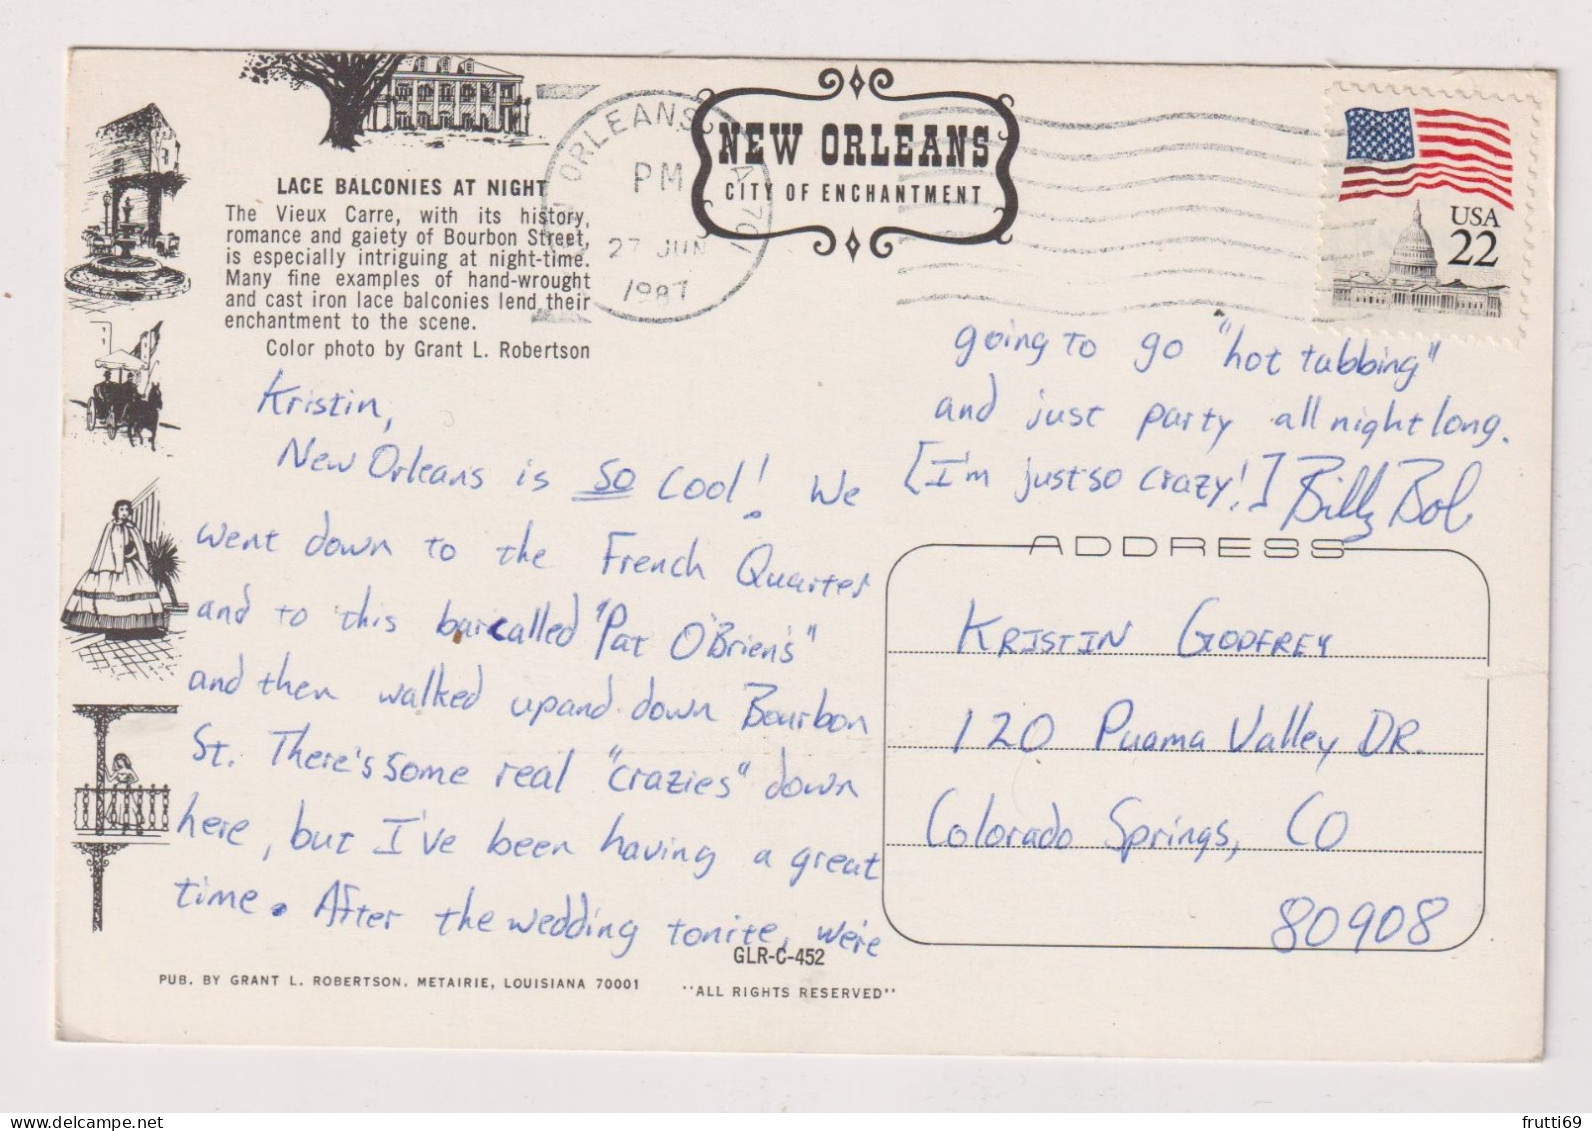 NEW ORLEANS
CITY OF ENCHANTMENT
ORLEANS
PM
27 JUN
1987
USA
22
LACE BALCONIES AT NIGHT
The Vieux Carre, with its history,
romance and gaiety of Bourbon Street,
is especially intriguing at night-time.
Many fine examples of hand-wrought
and cast iron lace balconies lend their
enchantment to the scene.
Color photo by Grant L. Robertson
Kristin,
New Orleans is so cool! We
went down to the French Quarter
and to this bar called "Pat O'Brien's"
and then walked up and down Bourbon
St. There's some real "crazies" down
here, but I've been having a great
time. After the wedding tonite, we're
going to go "hot tubbing"
and just party all night long.
[I'm just so crazy!] Billy Bob
ADDRESS
KRISTIN GODFREY
120 Puama Valley DR.
Colorado Springs, CO
80908
GLR-C-452
PUB. BY GRANT L. ROBERTSON, METAIRIE, LOUISIANA 70001 "ALL RIGHTS RESERVED"
frutti69